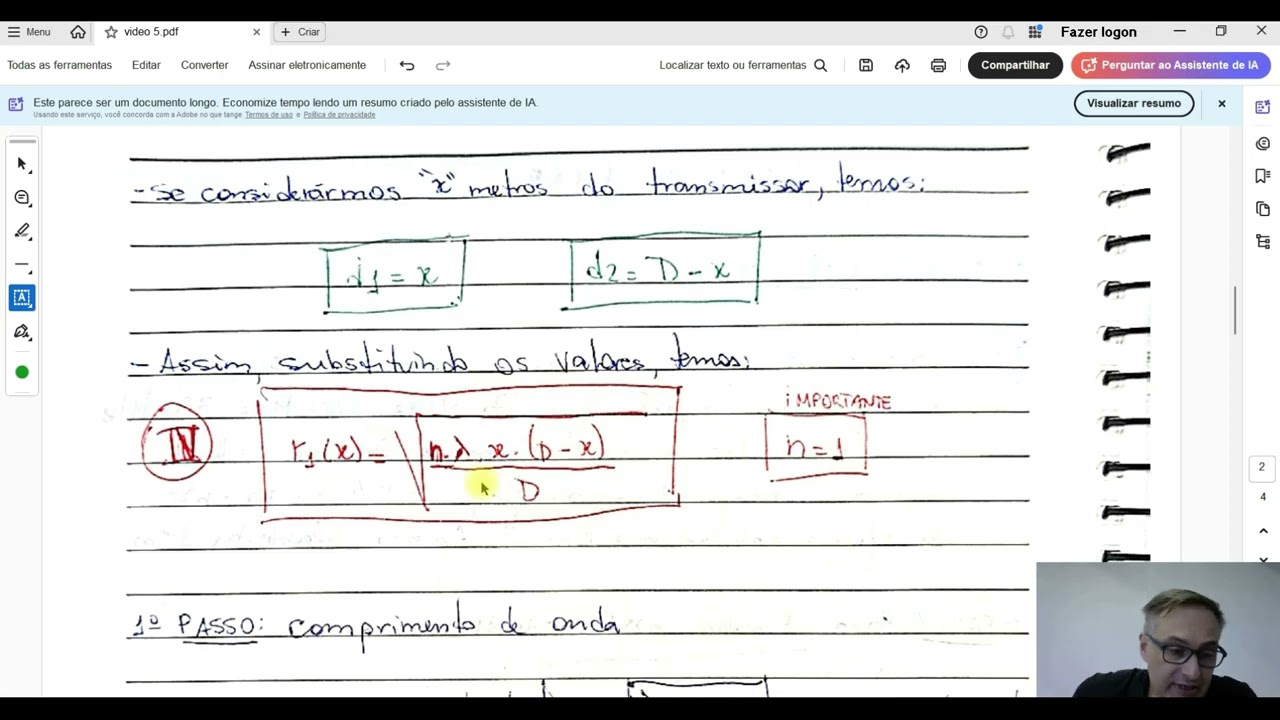 Menu
video 5.pdf
Criar
Fazer logon
Todas as ferramentas
Editar
Converter
Assinar eletronicamente
Localizar texto ou ferramentas
Compartilhar
Perguntar ao Assistente de IA
Este parece ser um documento longo. Economize tempo lendo um resumo criado pelo assistente de IA.
Usando este serviço, você concorda com a Adobe no que tange Termos de uso e Política de privacidade
Visualizar resumo
- Se considerármos "x" metros do transmissor, temos:
d1 = x
d2 = D - x
- Assim, substituindo os valores, temos:
IMPORTANTE
IV
r1(x) = √ n.λ.x.(D-x)
D
n=1
2
4
1º PASSO: comprimento de onda